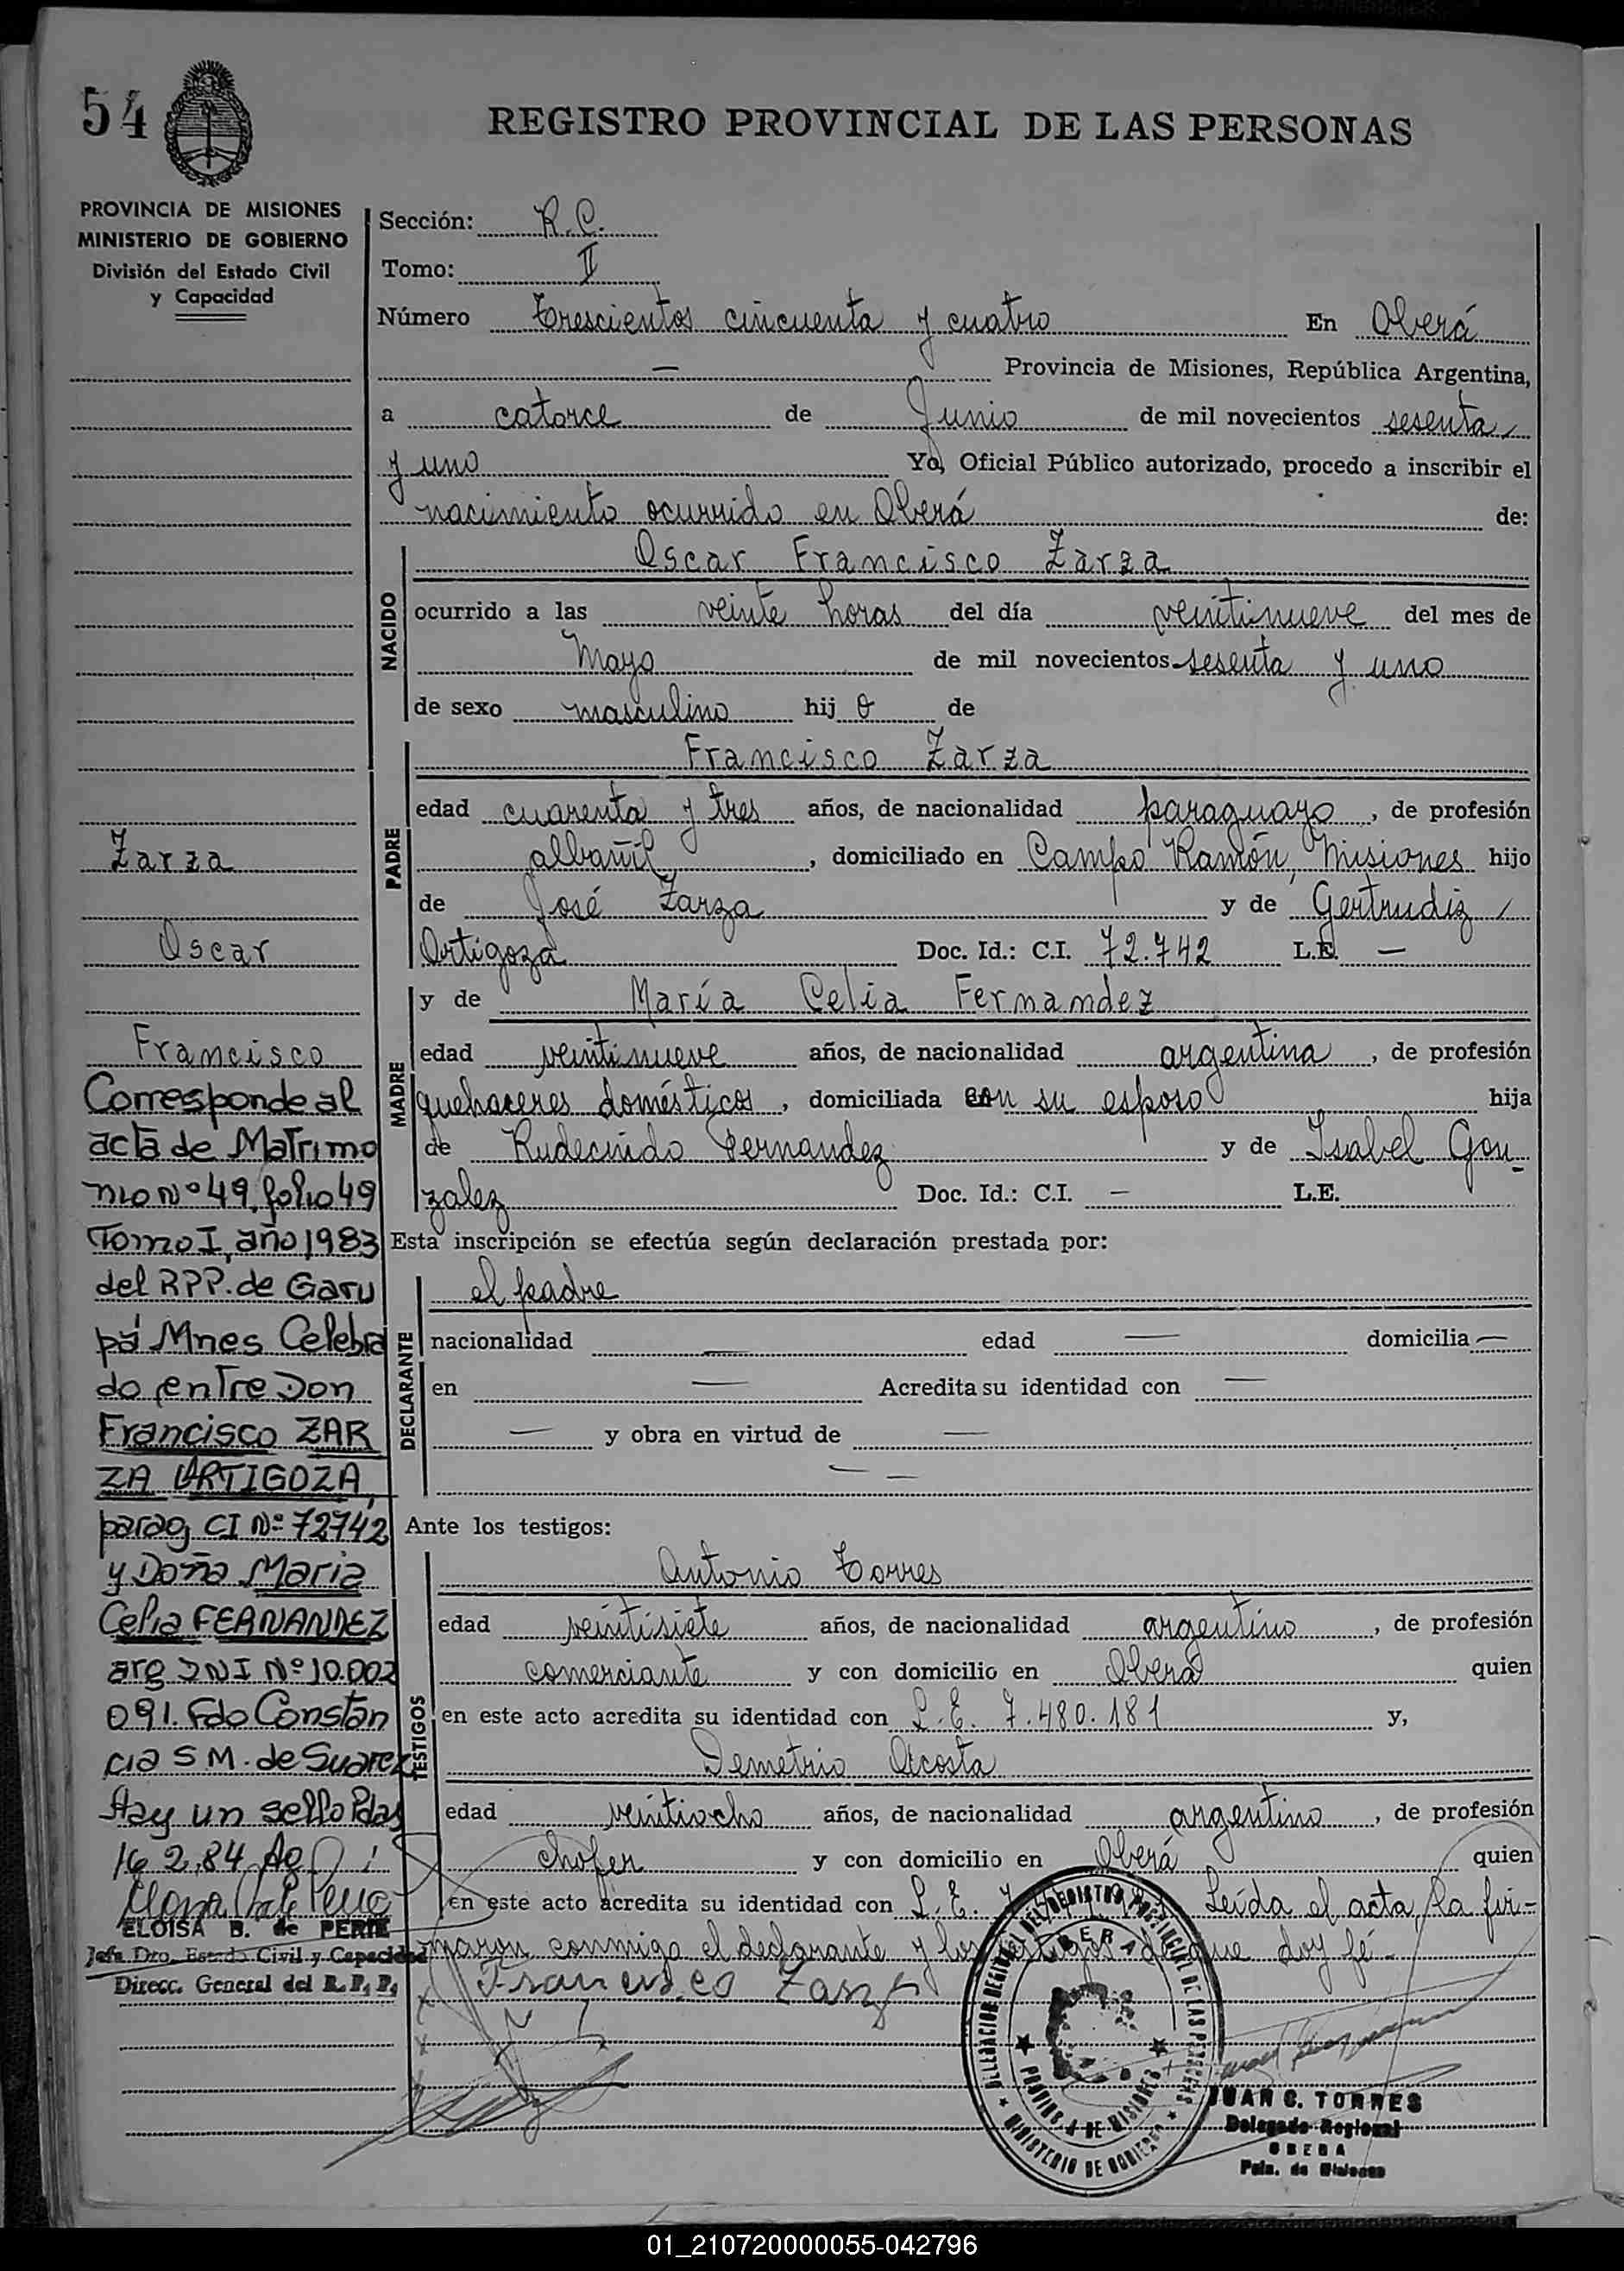 54
REGISTRO PROVINCIAL DE LAS PERSONAS
PROVINCIA DE MISIONES
MINISTERIO DE GOBIERNO
División del Estado Civil
y Capacidad
Sección: R.C.
Tomo: II
Número Trescientos cincuenta y cuatro En Oberá
— Provincia de Misiones, República Argentina,
a catorce de Junio de mil novecientos sesenta
y uno Yo, Oficial Público autorizado, procedo a inscribir el
nacimiento ocurrido en Oberá de:
NACIDO
Oscar Francisco Zarza
ocurrido a las veinte horas del día veintinueve del mes de
Mayo de mil novecientos sesenta y uno
de sexo masculino hijo de
PADRE
Francisco Zarza
edad cuarenta y tres años, de nacionalidad paraguayo, de profesión
albañil, domiciliado en Campo Ramón, Misiones hijo
de José Zarza y de Gertrudiz
Ortigoza Doc. Id.: C.I. 72.742 L.E. —
MADRE
y de María Celia Fernandez
edad veintinueve años, de nacionalidad argentina, de profesión
quehaceres domésticos, domiciliada con su esposo hija
de Rudecindo Fernandez y de Isabel Gon-
zalez Doc. Id.: C.I. — L.E.
Esta inscripción se efectúa según declaración prestada por:
DECLARANTE
el padre
nacionalidad — edad — domicilia —
en — Acredita su identidad con —
— y obra en virtud de —
— —
Ante los testigos:
TESTIGOS
Antonio Torres
edad veintisiete años, de nacionalidad argentino, de profesión
comerciante y con domicilio en Oberá quien
en este acto acredita su identidad con L.E. 7.480.181 y,
Demetrio Acosta
edad veintiocho años, de nacionalidad argentino, de profesión
chofer y con domicilio en Oberá quien
en este acto acredita su identidad con L.E. Leída el acta, la fir-
maron conmigo el declarante y los testigos de que doy fé.-
Francisco Zarza
Zarza
Oscar
Francisco
Corresponde al
acta de Matrimo
nio Nº 49, folio 49
Tomo I, año 1983
del RPP. de Garu
pá Mnes Celebra
do entre Don
Francisco ZAR
ZA ORTIGOZA,
parag CI Nº 72742
y Doña Maria
Celia FERNANDEZ
arg DNI Nº 10.002
091. Fdo Constan
cia S M. de Suarez
Hay un sello Pdas
16 2.84
ELOISA B. de PERIE
Jefa Dto. Estado Civil y Capacidad
Direcc. General del R.P.P.
DELEGACION REGIONAL DEL REGISTRO PROVINCIAL DE LAS PERSONAS
OBERA
PROVINCIA DE MISIONES
MINISTERIO DE GOBIERNO
JUAN C. TORRES
Delegado Regional
OBERA
Pcia. de Misiones
01_210720000055-042796